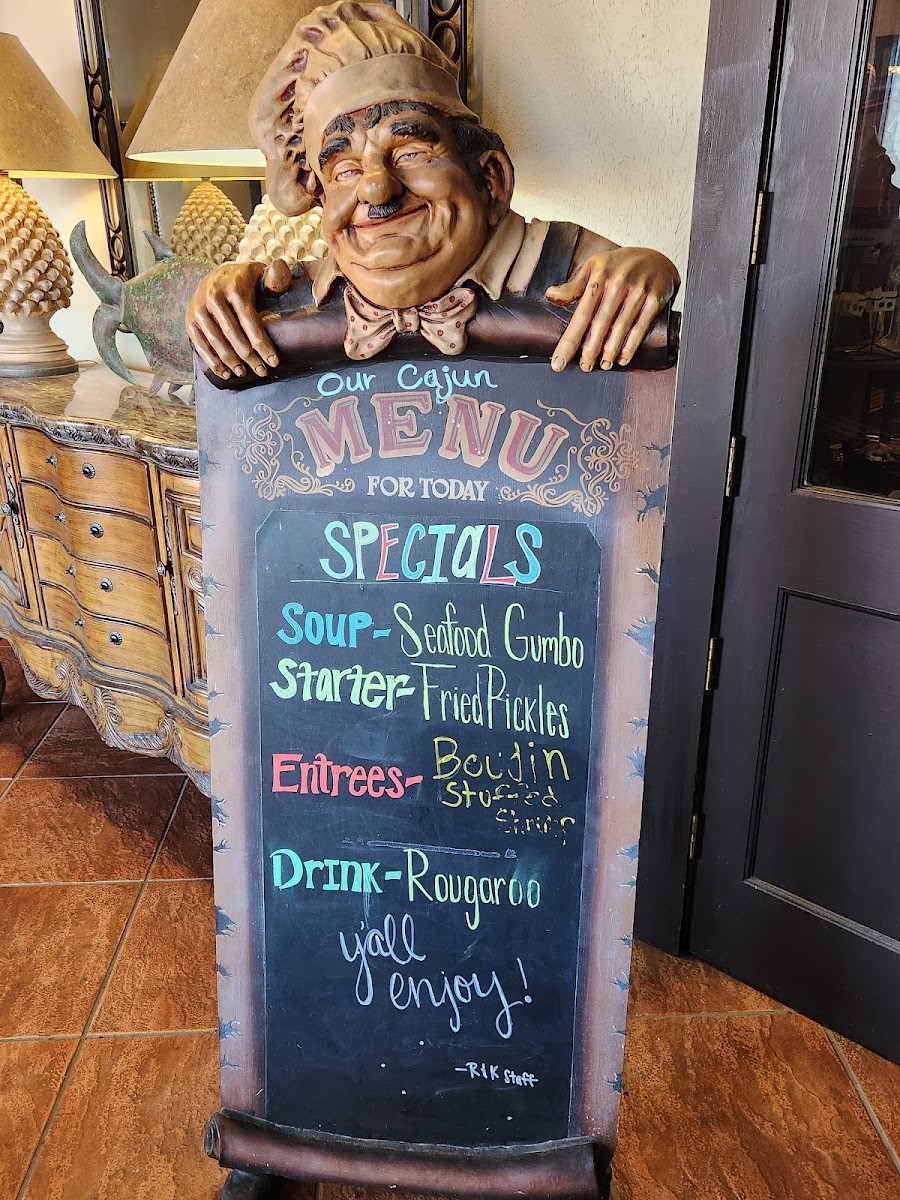 Our Cajun
MENU
FOR TODAY
SPECIALS
Soup- Seafood Gumbo
Starter- Fried Pickles
Entrees- Boudin
Stuffed
Shrimp
Drink- Rougaroo
y'all
enjoy!
-R&K Staff